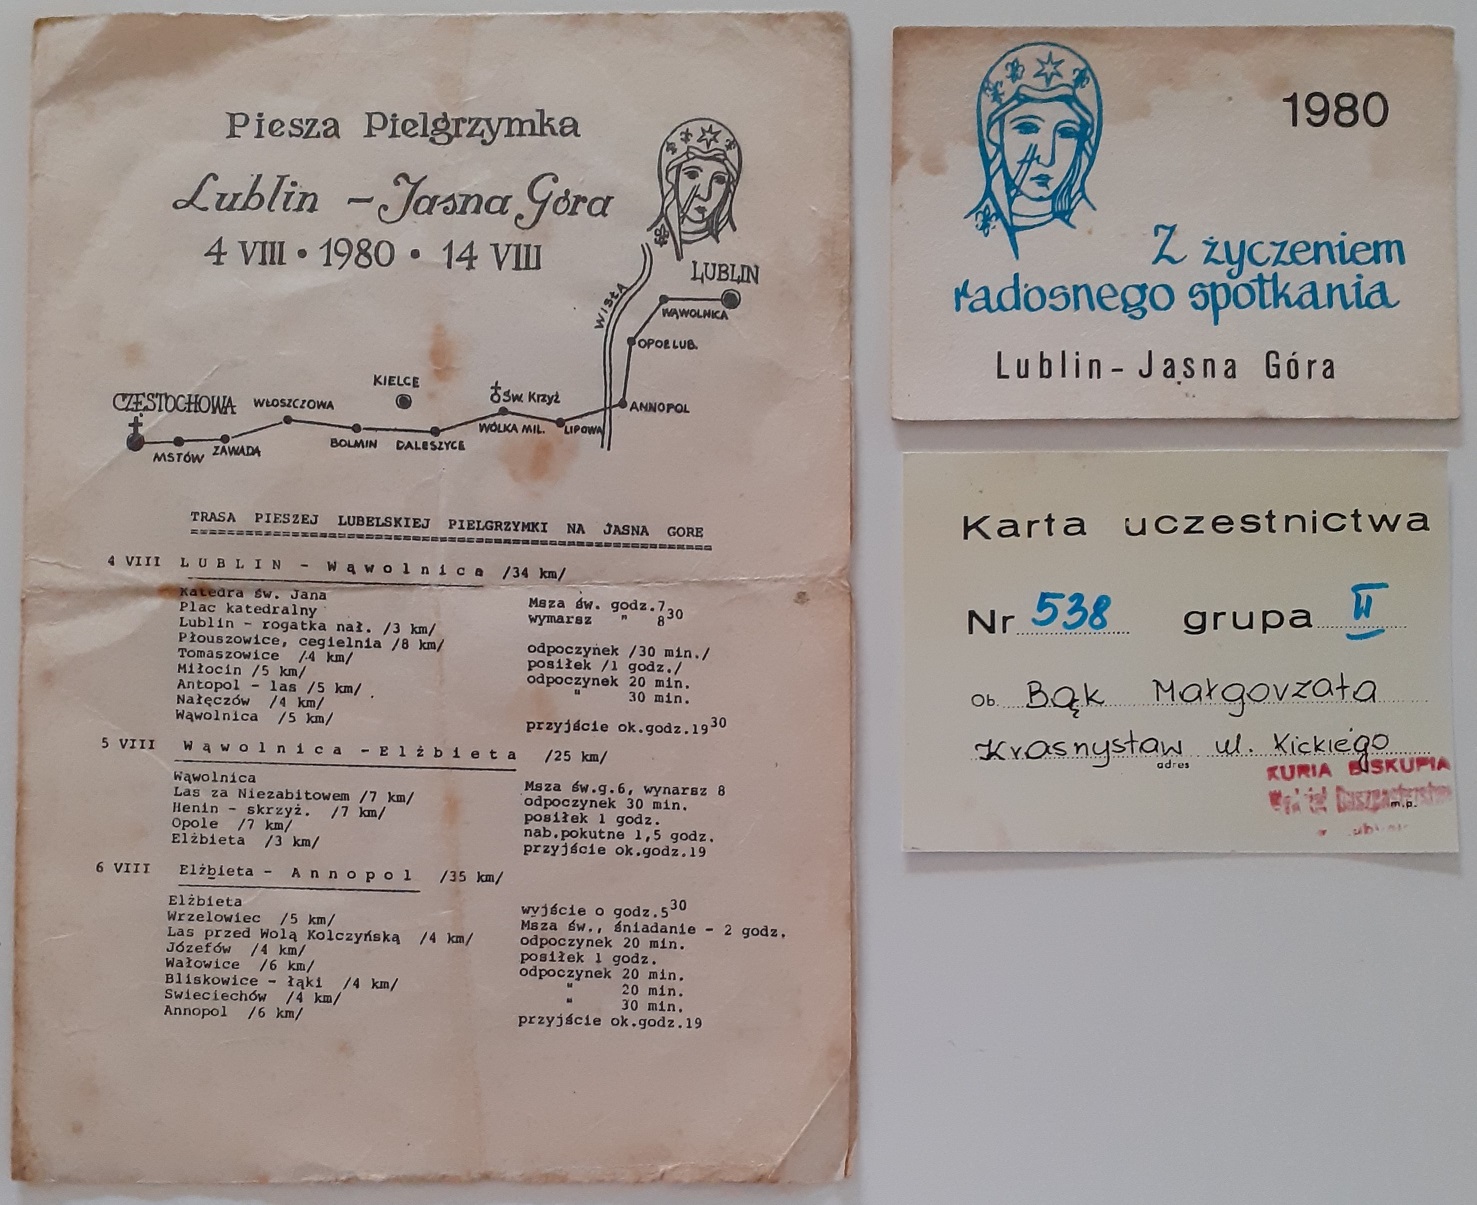 Piesza Pielgrzymka
Lublin – Jasna Góra
4 VIII • 1980 • 14 VIII
LUBLIN
WISŁA
WĄWOLNICA
OPOLE LUB.
KIELCE
CZĘSTOCHOWA
WŁOSZCZOWA
Św. Krzyż
ANNOPOL
MSTÓW
ZAWADA
BOLMIN
DALESZYCE
WÓLKA MIL.
LIPOWA
TRASA PIESZEJ LUBELSKIEJ PIELGRZYMKI NA JASNA GORE
4 VIII LUBLIN – Wąwolnica /34 km/
Katedra św. Jana Msza św. godz.7
Plac katedralny wymarsz " 8 30
Lublin - rogatka nał. /3 km/
Płouszowice, cegielnia /8 km/ odpoczynek /30 min./
Tomaszowice /4 km/ posiłek /1 godz./
Miłocin /5 km/ odpoczynek 20 min.
Antopol - las /5 km/ " 30 min.
Nałęczów /4 km/
Wąwolnica /5 km/ przyjście ok.godz.19 30
5 VIII Wąwolnica -Elżbieta /25 km/
Wąwolnica Msza św.g.6, wynarsz 8
Las za Niezabitowem /7 km/ odpoczynek 30 min.
Henin - skrzyż. /7 km/ posiłek 1 godz.
Opole /7 km/ nab.pokutne 1,5 godz.
Elżbieta /3 km/ przyjście ok.godz.19
6 VIII Elżbieta - Annopol /35 km/
Elżbieta wyjście o godz.5 30
Wrzelowiec /5 km/ Msza św., śniadanie - 2 godz.
Las przed Wolą Kolczyńską /4 km/ odpoczynek 20 min.
Józefów /4 km/ posiłek 1 godz.
Wałowice /6 km/ odpoczynek 20 min.
Bliskowice - łąki /4 km/ " 20 min.
Swieciechów /4 km/ " 30 min.
Annopol /6 km/ przyjście ok.godz.19
1980
Z życzeniem
radosnego spotkania
Lublin - Jasna Góra
Karta uczestnictwa
Nr 538 grupa II
Ob. Bąk Małgorzata
Krasnystaw ul. Kickiego
adres
KURIA BISKUPIA
m.p.